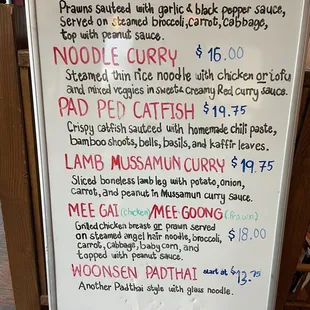 Prawns sauteed with garlic & black pepper sauce,
Served on steamed brocoli, carrot, cabbage,
top with peanut sauce.
NOODLE CURRY $16.00
Steamed thin rice noodle with chicken or tofu
and mixed veggies in sweet & creamy Red curry sauce.
PAD PED CATFISH $19.75
Crispy catfish sauteed with homemade chili paste,
bamboo shoots, bells, basils, and kaffir leaves.
LAMB MUSSAMUN CURRY $19.75
Sliced boneless lamb leg with potato, onion,
carrot, and peanut in Mussamun curry sauce.
MEE GAI (chicken)/MEE GOONG (prawn)
Grilled chicken breast or prawn served
on steamed angel hair noodle, broccoli, $18.00
carrot, cabbage, baby corn, and
topped with peanut sauce.
WOONSEN PADTHAI start at $13.75
Another Padthai style with glass noodle.